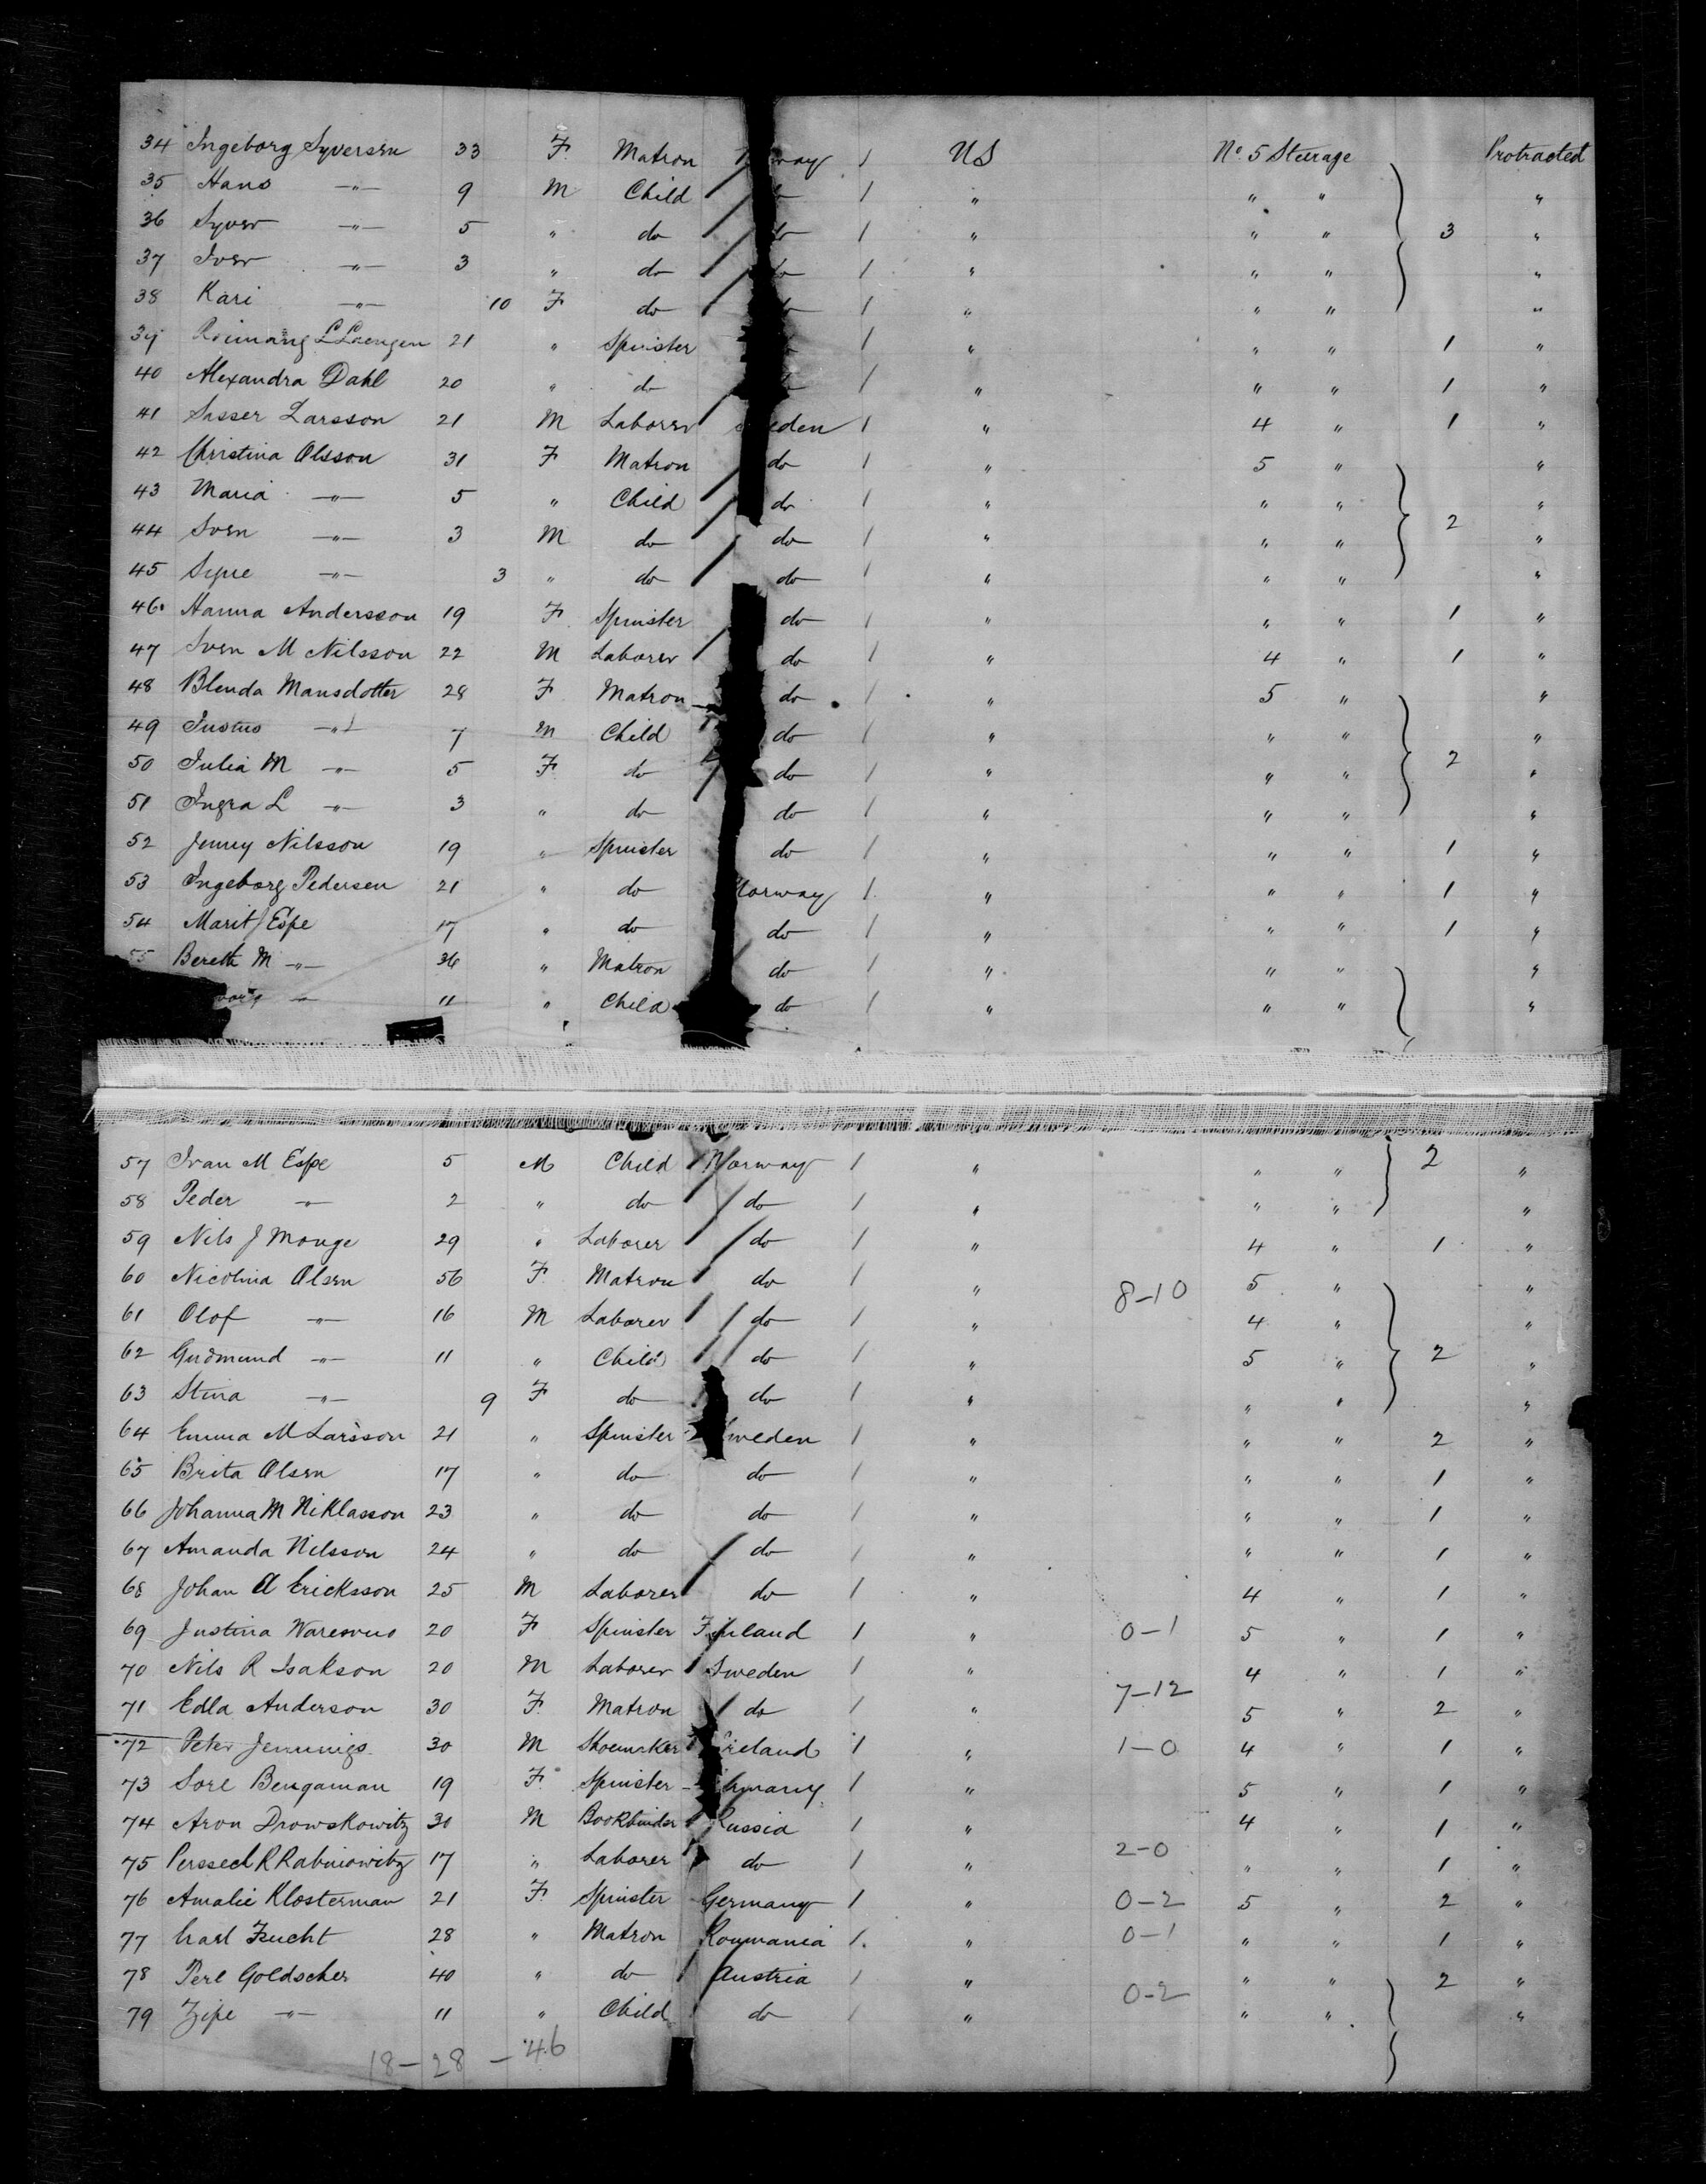 34 Ingeborg Syversen 33 F. Matron way 1 US No. 5 Steerage Protracted
35 Hans -"- 9 M Child 1 " " " "
36 Syver -"- 5 " do 1 " " " 3 "
37 Iver -"- 3 " do 1 " " " "
38 Kari -"- 10 F do 1 " " " "
39 21 " Spinster 1 " " " 1 "
40 Alexandra Dahl 20 " do 1 " " " 1 "
41 Sasser Larsson 21 M Laborer eden 1 " 4 " 1 "
42 Christina Olsson 31 F Matron do 1 " 5 " "
43 Maria -"- 5 " Child do 1 " " " "
44 Sven -"- 3 M do do 1 " " " 2 "
45 -"- 3 " do do 1 " " " "
46 Hanna Andersson 19 F. Spinster do 1 " " " 1 "
47 Sven M Nilsson 22 M Laborer do 1 " 4 " 1 "
48 Blenda Mansdotter 28 F. Matron do 1 " 5 " "
49 Justus -"- 7 M Child do 1 " " " "
50 Julia M -"- 5 F. do do 1 " " " 2 "
51 Ingra L -"- 3 " do do 1 " " " "
52 Jenny Nilsson 19 " Spinster do 1 " " " 1 "
53 Ingeborg Pedersen 21 " do Norway 1 " " " 1 "
54 Marit J Espe 17 " do do 1 " " " 1 "
55 Bereth M -"- 36 " Matron do 1 " " " "
-"- 11 " Child do 1 " " " "
57 Ivan M Espe 5 M Child Norway 1 " " " 2 "
58 Peder -"- 2 " do do 1 " " " "
59 Nils J Monge 29 " Laborer do 1 " 4 " 1 "
60 Nicolina Olsen 56 F. Matron do 1 " 8-10 5 " "
61 Olof -"- 16 M Laborer do 1 " 4 " "
62 Gudmund -"- 11 " Child do 1 " 5 " 2 "
63 Stina -"- 9 F do do 1 " " " "
64 Emma M Larsson 21 " Spinster Sweden 1 " " " 2 "
65 Brita Olsen 17 " do do 1 " " " 1 "
66 Johanna M Niklasson 23 " do do 1 " " " 1 "
67 Amanda Nilsson 24 " do do 1 " " " 1 "
68 Johan A Ericksson 25 M Laborer do 1 " 4 " 1 "
69 Justina 20 F Spinster Finland 1 " 0-1 5 " 1 "
70 Nils R Isakson 20 M Laborer Sweden 1 " 4 " 1 "
71 Edla Anderson 30 F. Matron do 1 " 7-12 5 " 2 "
72 Peter Jennings 30 M Shoemaker Ireland 1 " 1-0 4 " 1 "
73 Sore Bengaman 19 F. Spinster many 1 " 5 " 1 "
74 Aron Drowskowitz 30 M Bookbinder Russia 1 " 4 " 1 "
75 R Rabinowitz 17 " Laborer do 1 " 2-0 " " 1 "
76 Amalie Klosterman 21 F. Spinster Germany 1 " 0-2 5 " 2 "
77 28 " Matron Roumania 1 " 0-1 " " 1 "
78 Perl Goldscher 40 " do Austria 1 " " " 2 "
79 Zipe -"- 11 " Child do 1 " 0-2 " " "
18-28-46